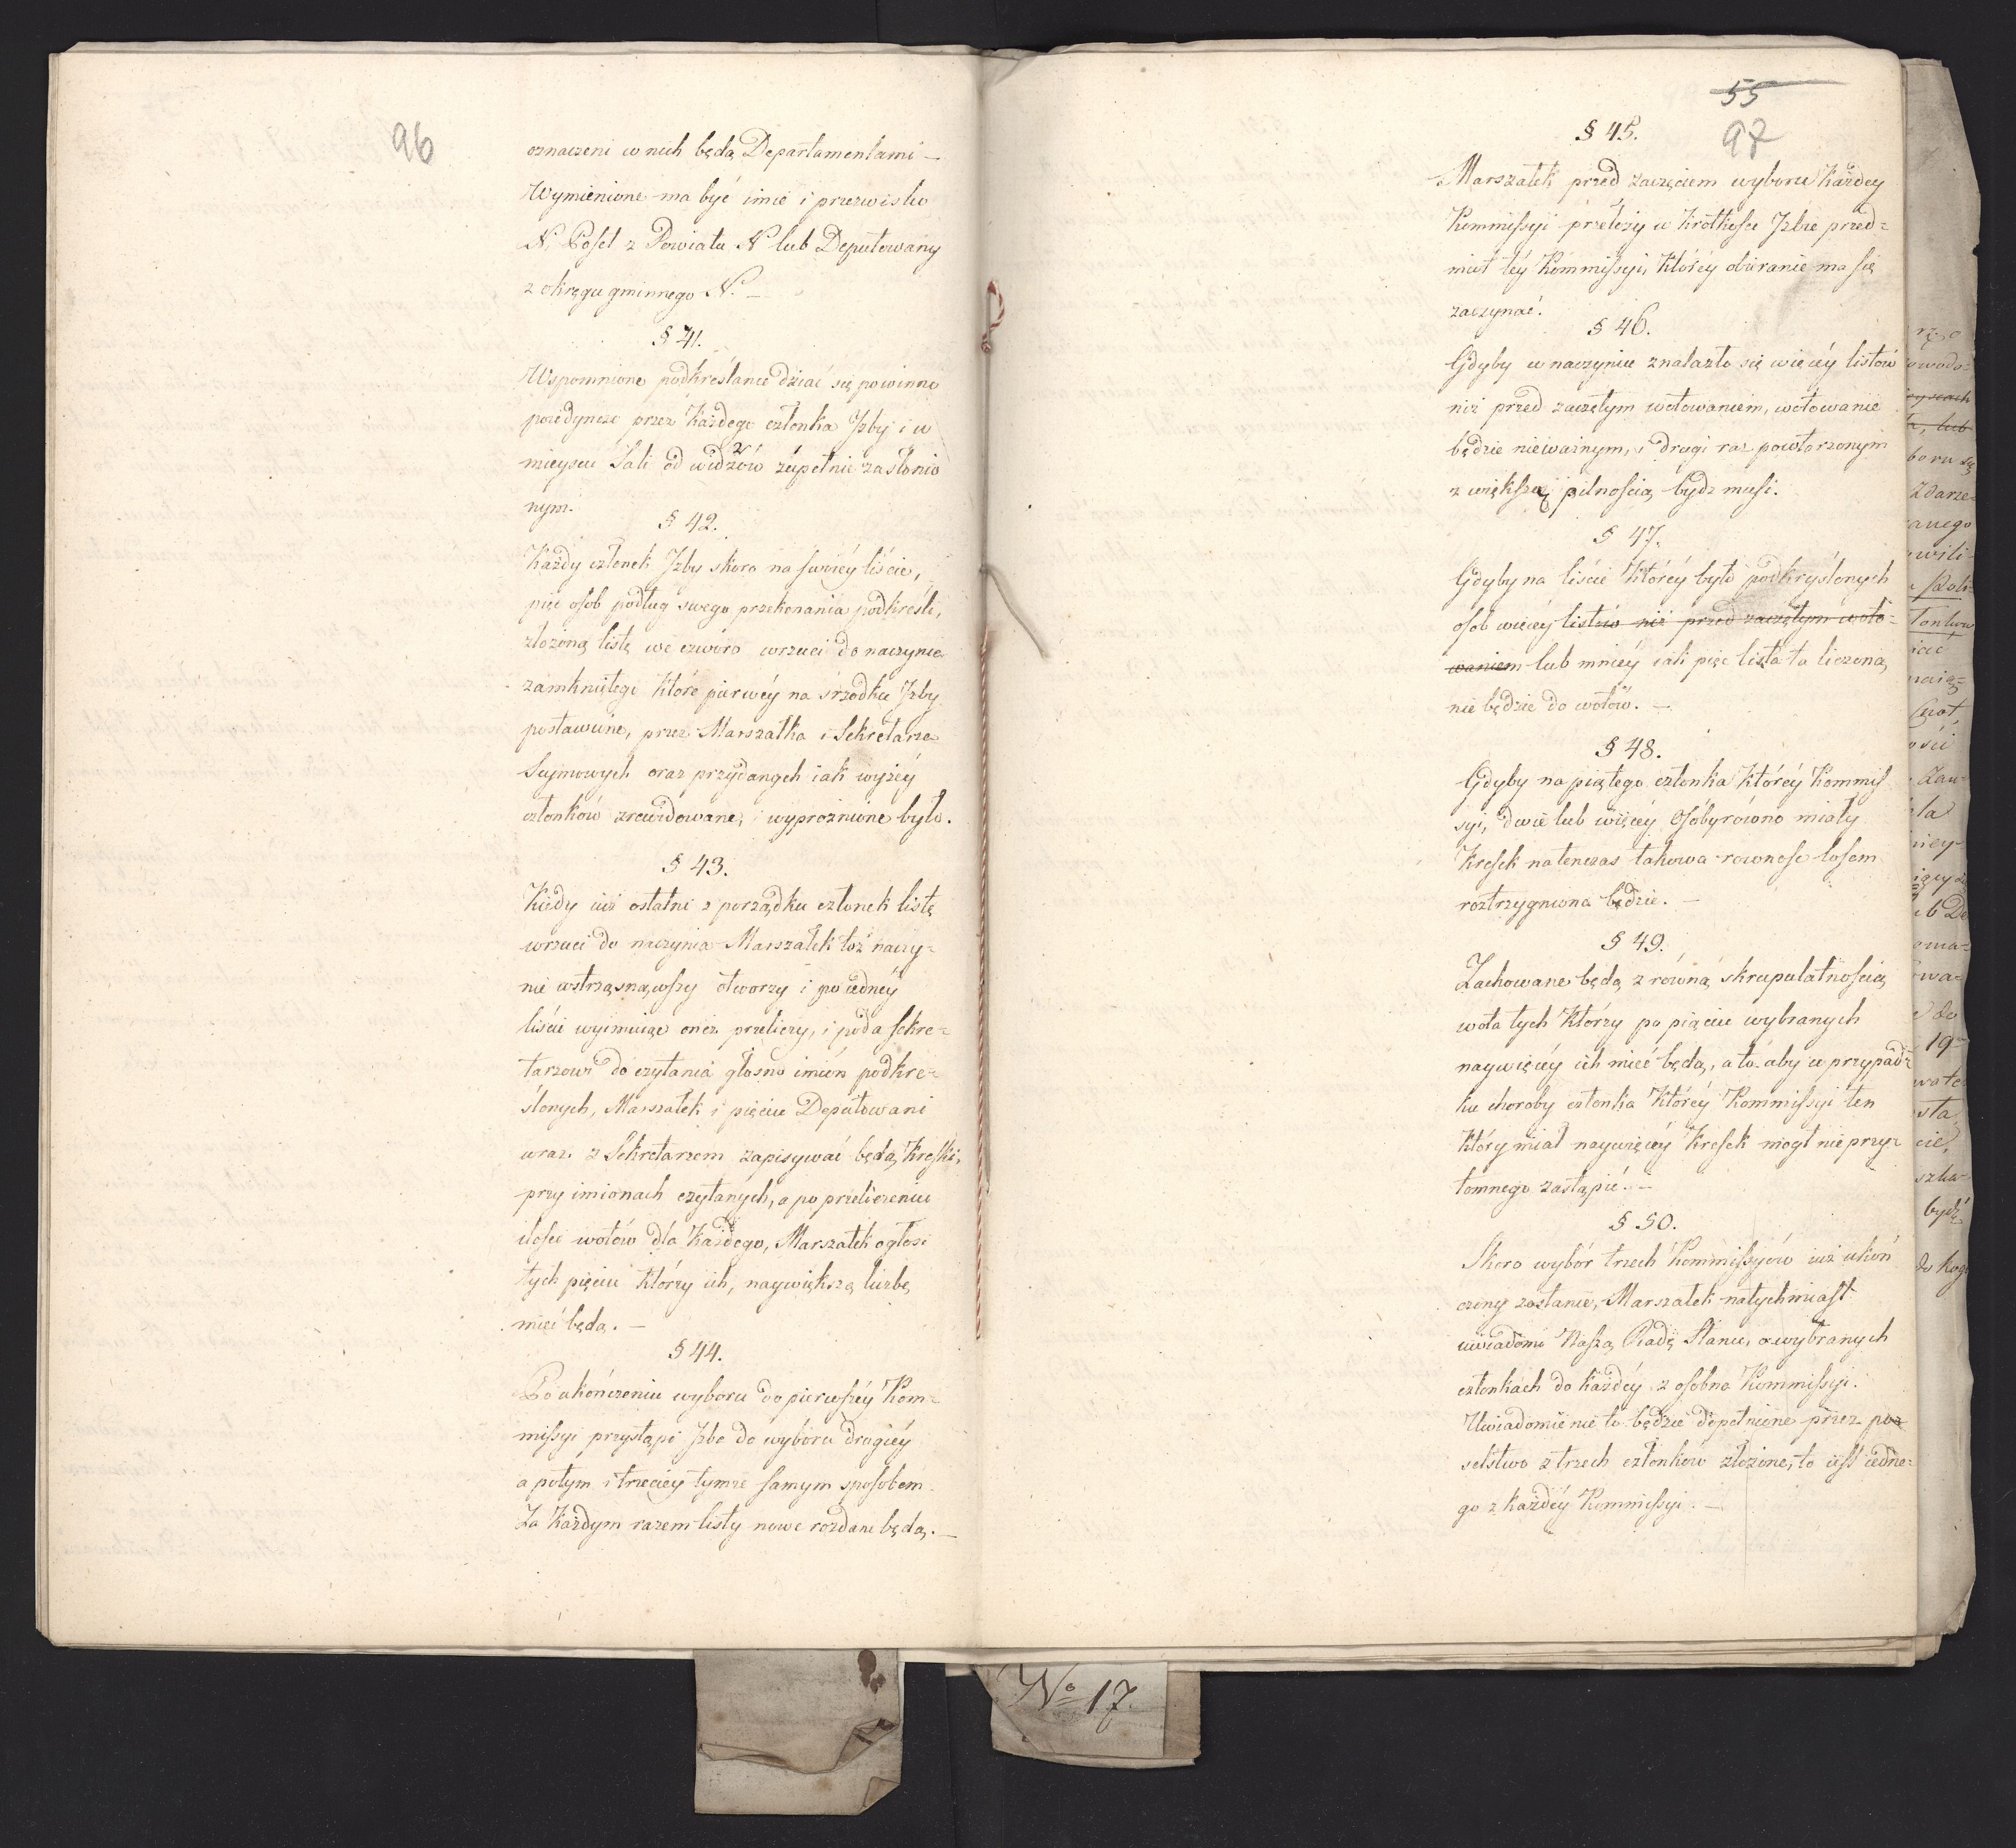 96
oznaczeni w nich będą Departamentami —
Wymienione ma być imie i przezwisko
N. Poseł z Powiatu N lub Deputowany
z okręgu gminnego N. —
§ 41.
Wspomnione podkreślanie dziać się powinno
poiedyncze przez Każdego członka Jzby i w
mieyscu Sali od widzów zupełnie zasłonio
nym.
§ 42.
Każdy członek Jzby skoro na swoiéy liście,
pięć osob podług swego przekonania podkreśli,
złożoną listę we czwóro wrzuci do naczynia
zamkniętego które pierwéy na srzodku Jzby
postawione, przez Marszałka i Sekretarza
Seymowych oraz przydanych iak wyżéy
członków zrewidowane, i wyprożnione było.
§ 43.
Kiedy iuż ostatni z porządku członek listę
wrzuci do naczynia Marszałek toż naczy-
nie wstrząsnąwszy otworzy i po iednéy
liście wyimuiąc oneż przeliczy, i poda sekre-
tarzowi do czytania głosno imion podkre-
ślonych, Marszałek i pięciu Deputowani
wraz z Sekretarzem zapisywać będą Kreski,
przy imionach czytanych, a po przeliczeniu
ilości wotów dla Każdego, Marszałek ogłosi
tych pięciu którzy ich, naywiększą liczbę
mieć będą. —
§ 44.
Po ukończeniu wyboru do pierwszéy Kom-
missyi przystąpi Jzba do wyboru drugiéy
a potym i trzeciey tymże samym sposobem
Za Każdym razem listy nowe rozdane będą. —
55
97
§ 45.
Marszałek przed zaczęciem wyboru Każdey
Kommissyi przełoży w krótkości Jzbie przed-
miot téy Kommissyi, któréy obieranie ma się
zaczynać.
§ 46.
Gdyby w naczyniu znalazło się więcéy listów
niż przed zaczętym wotowaniem, wotowanie
będzie nieważnym, i drugi raz powtorzonym
z większą pilnością bydz musi.
§ 47.
Gdyby na liście któréy było podkryślonych
osob więcéy listów niż przed zaczętym woto-
waniem lub mniéy iak pięc lista ta liczona,
nie będzie do wotów. —
§ 48.
Gdyby na piątego członka któréy Kommis
syi, dwie lub więcéy Osóby równo miały
Kresek natenczas takowa rownośc losem
roztrzygniona będzie. —
§ 49.
Zachowane będą z równą skrupulatnością
wota tych którzy po pięciu wybranych
naywięcéy ich mieć będą, a to aby w przypad-
ku choroby członka któréy Kommissyi ten
który miał naywięcéy Kresek mogł nieprzy-
tomnego zastąpić. —
§ 50.
Skoro wybór trzech Kommissyiów iuż ukoń
czony zostanie, Marszałek natychmiast
uwiadomi Naszą Radę Stanu, o wybranych
członkach do każdéy z osobna Kommissyi.
Uwiadomienie to będzie dopełnione przez po-
selstwo z trzech członków złożone, to iest iedne-
go z każdéy Kommissyi. —
No 17.